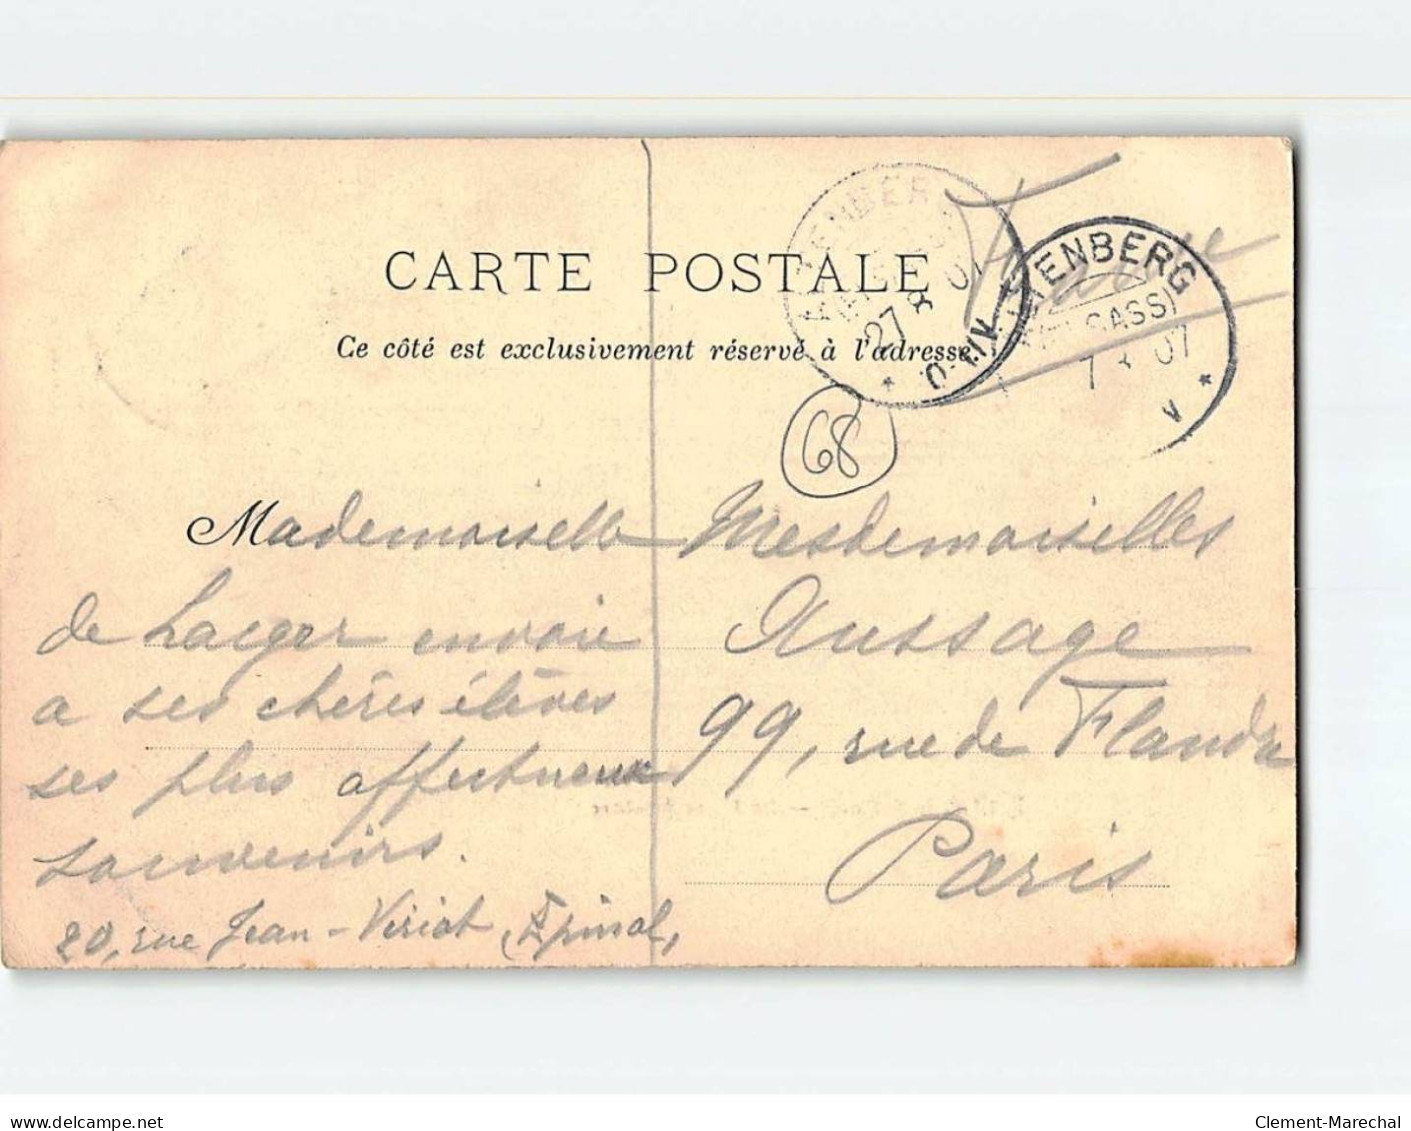 CARTE POSTALE
Ce côté est exclusivement réservé à l'adresse
France
27 8 07
TENBERG
7 8 07
V
68
Mademoiselle
de Laeger envoie
a ses chères élèves
ses plus affectueux
souvenirs.
20, rue Jean-Viriot, Epinal,
Mesdemoiselles
Aussage
99, rue de Flandre
Paris
www.delcampe.net
Clement-Marechal